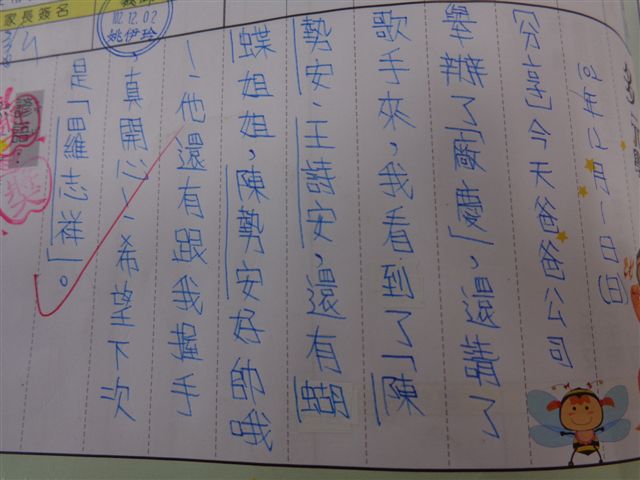 102年12月1日(日)
[分享]今天爸爸公司
舉辦了,還請了
歌手來,我看到了「陳
勢安、王詩安,還有蝴
蝶姐姐,陳勢安好帥哦
~他還有跟我握手
,真開心~希望下次
是「羅志祥」。
家長簽名
102.12.02
姚伊玲